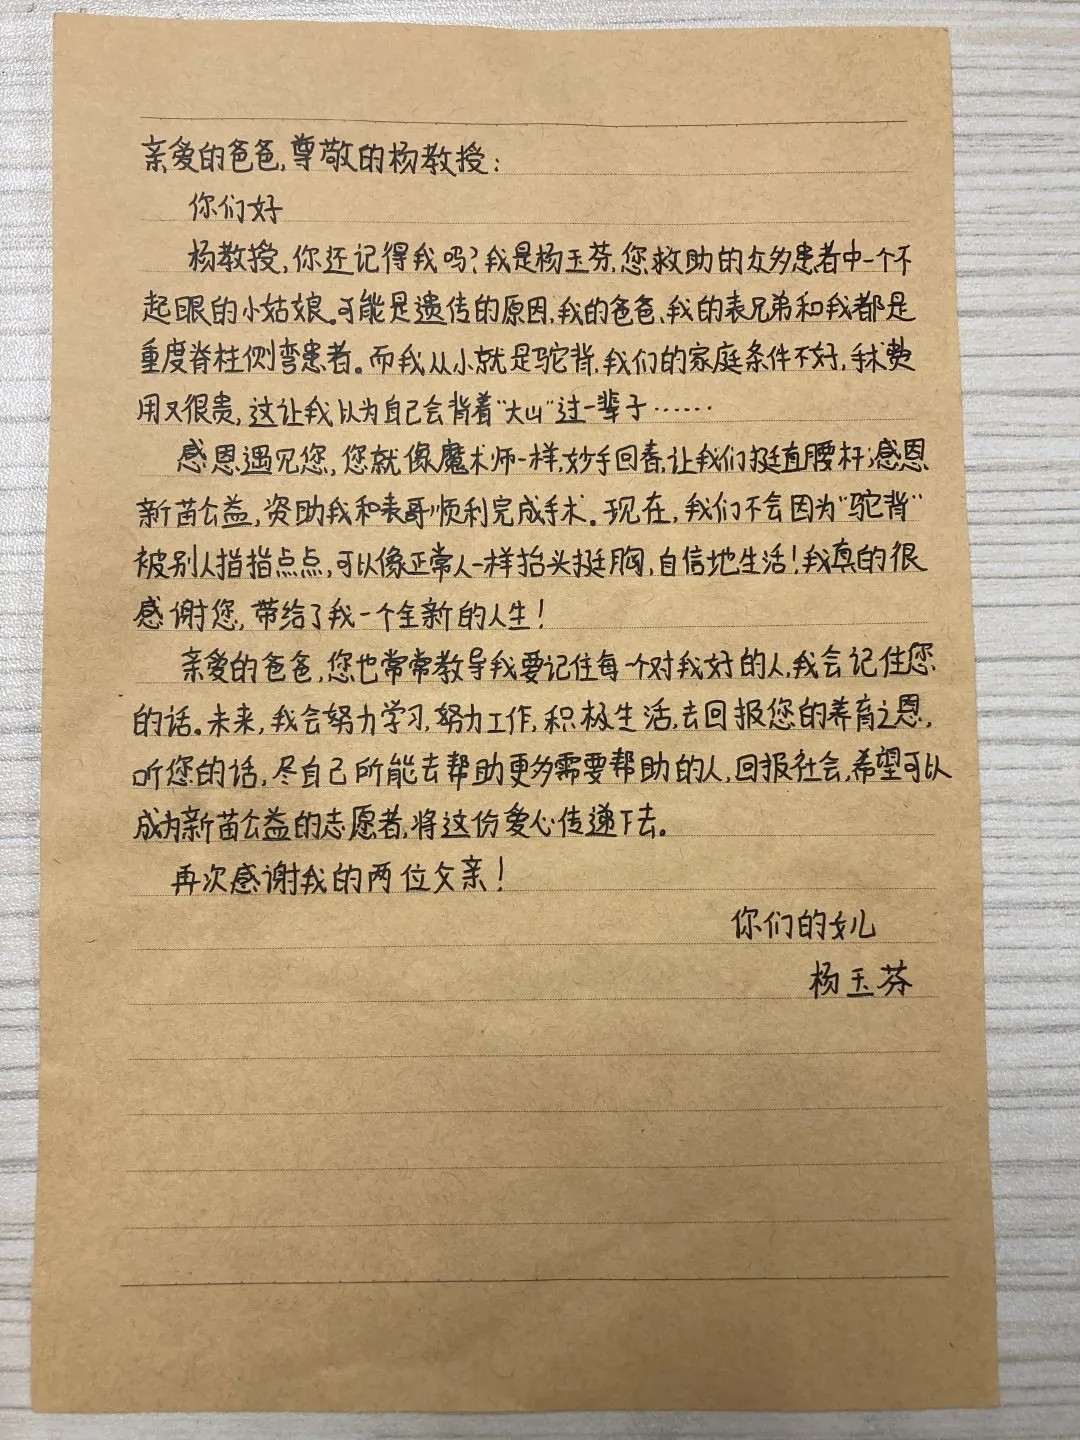 亲爱的爸爸,尊敬的杨教授:
你们好
杨教授,你还记得我吗?我是杨玉芬,您救助的众多患者中一个不
起眼的小姑娘。可能是遗传的原因,我的爸爸、我的表兄弟和我都是
重度脊柱侧弯患者。而我从小就是驼背,我们的家庭条件不好,手术费
用又很贵,这让我以为自己会背着“大山”过一辈子……
感恩遇见您,您就像魔术师一样,妙手回春,让我们挺直腰杆;感恩
新苗公益,资助我和表哥顺利完成手术。现在,我们不会因为“驼背”
被别人指指点点,可以像正常人一样抬头挺胸,自信地生活!我真的很
感谢您,带给了我一个全新的人生!
亲爱的爸爸,您也常常教导我要记住每个对我好的人,我会记住您
的话。未来,我会努力学习,努力工作,积极生活,去回报您的养育之恩,
听您的话,尽自己所能去帮助更多需要帮助的人,回报社会,希望可以
成为新苗公益的志愿者,将这份爱心传递下去。
再次感谢我的两位父亲!
你们的女儿
杨玉芬